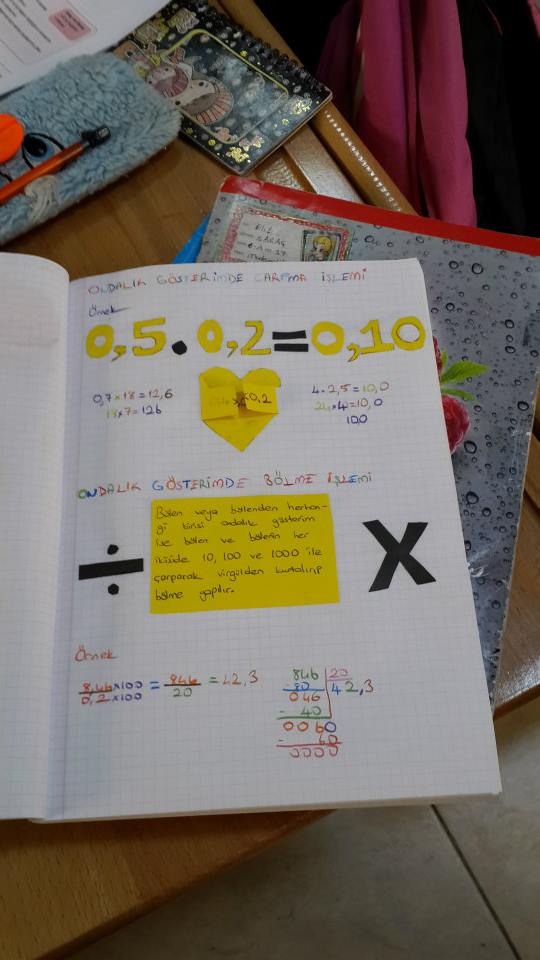 ONDALIK GÖSTERİMDE ÇARPMA İŞLEMİ
Örnek
0,5.0,2=0,10
0,7x18=12,6
18x7=126
x0,2
4.2,5=10,0
100
ONDALIK GÖSTERİMDE BÖLME İŞLEMİ
Bölen veya bölenden herhan-
gi birisi ondalık gösterim
ise bölen ve bölenin her
ikiside 10, 100 ve 1000 ile
çarparak virgülden kurtarılıp
bölme yapılır.
÷
X
Örnek
8,46x100 = 846 = 42,3
0,2x100 20
846 20
80 42,3
046
- 40
0060
- 60
0000
ELİF
SARAÇ